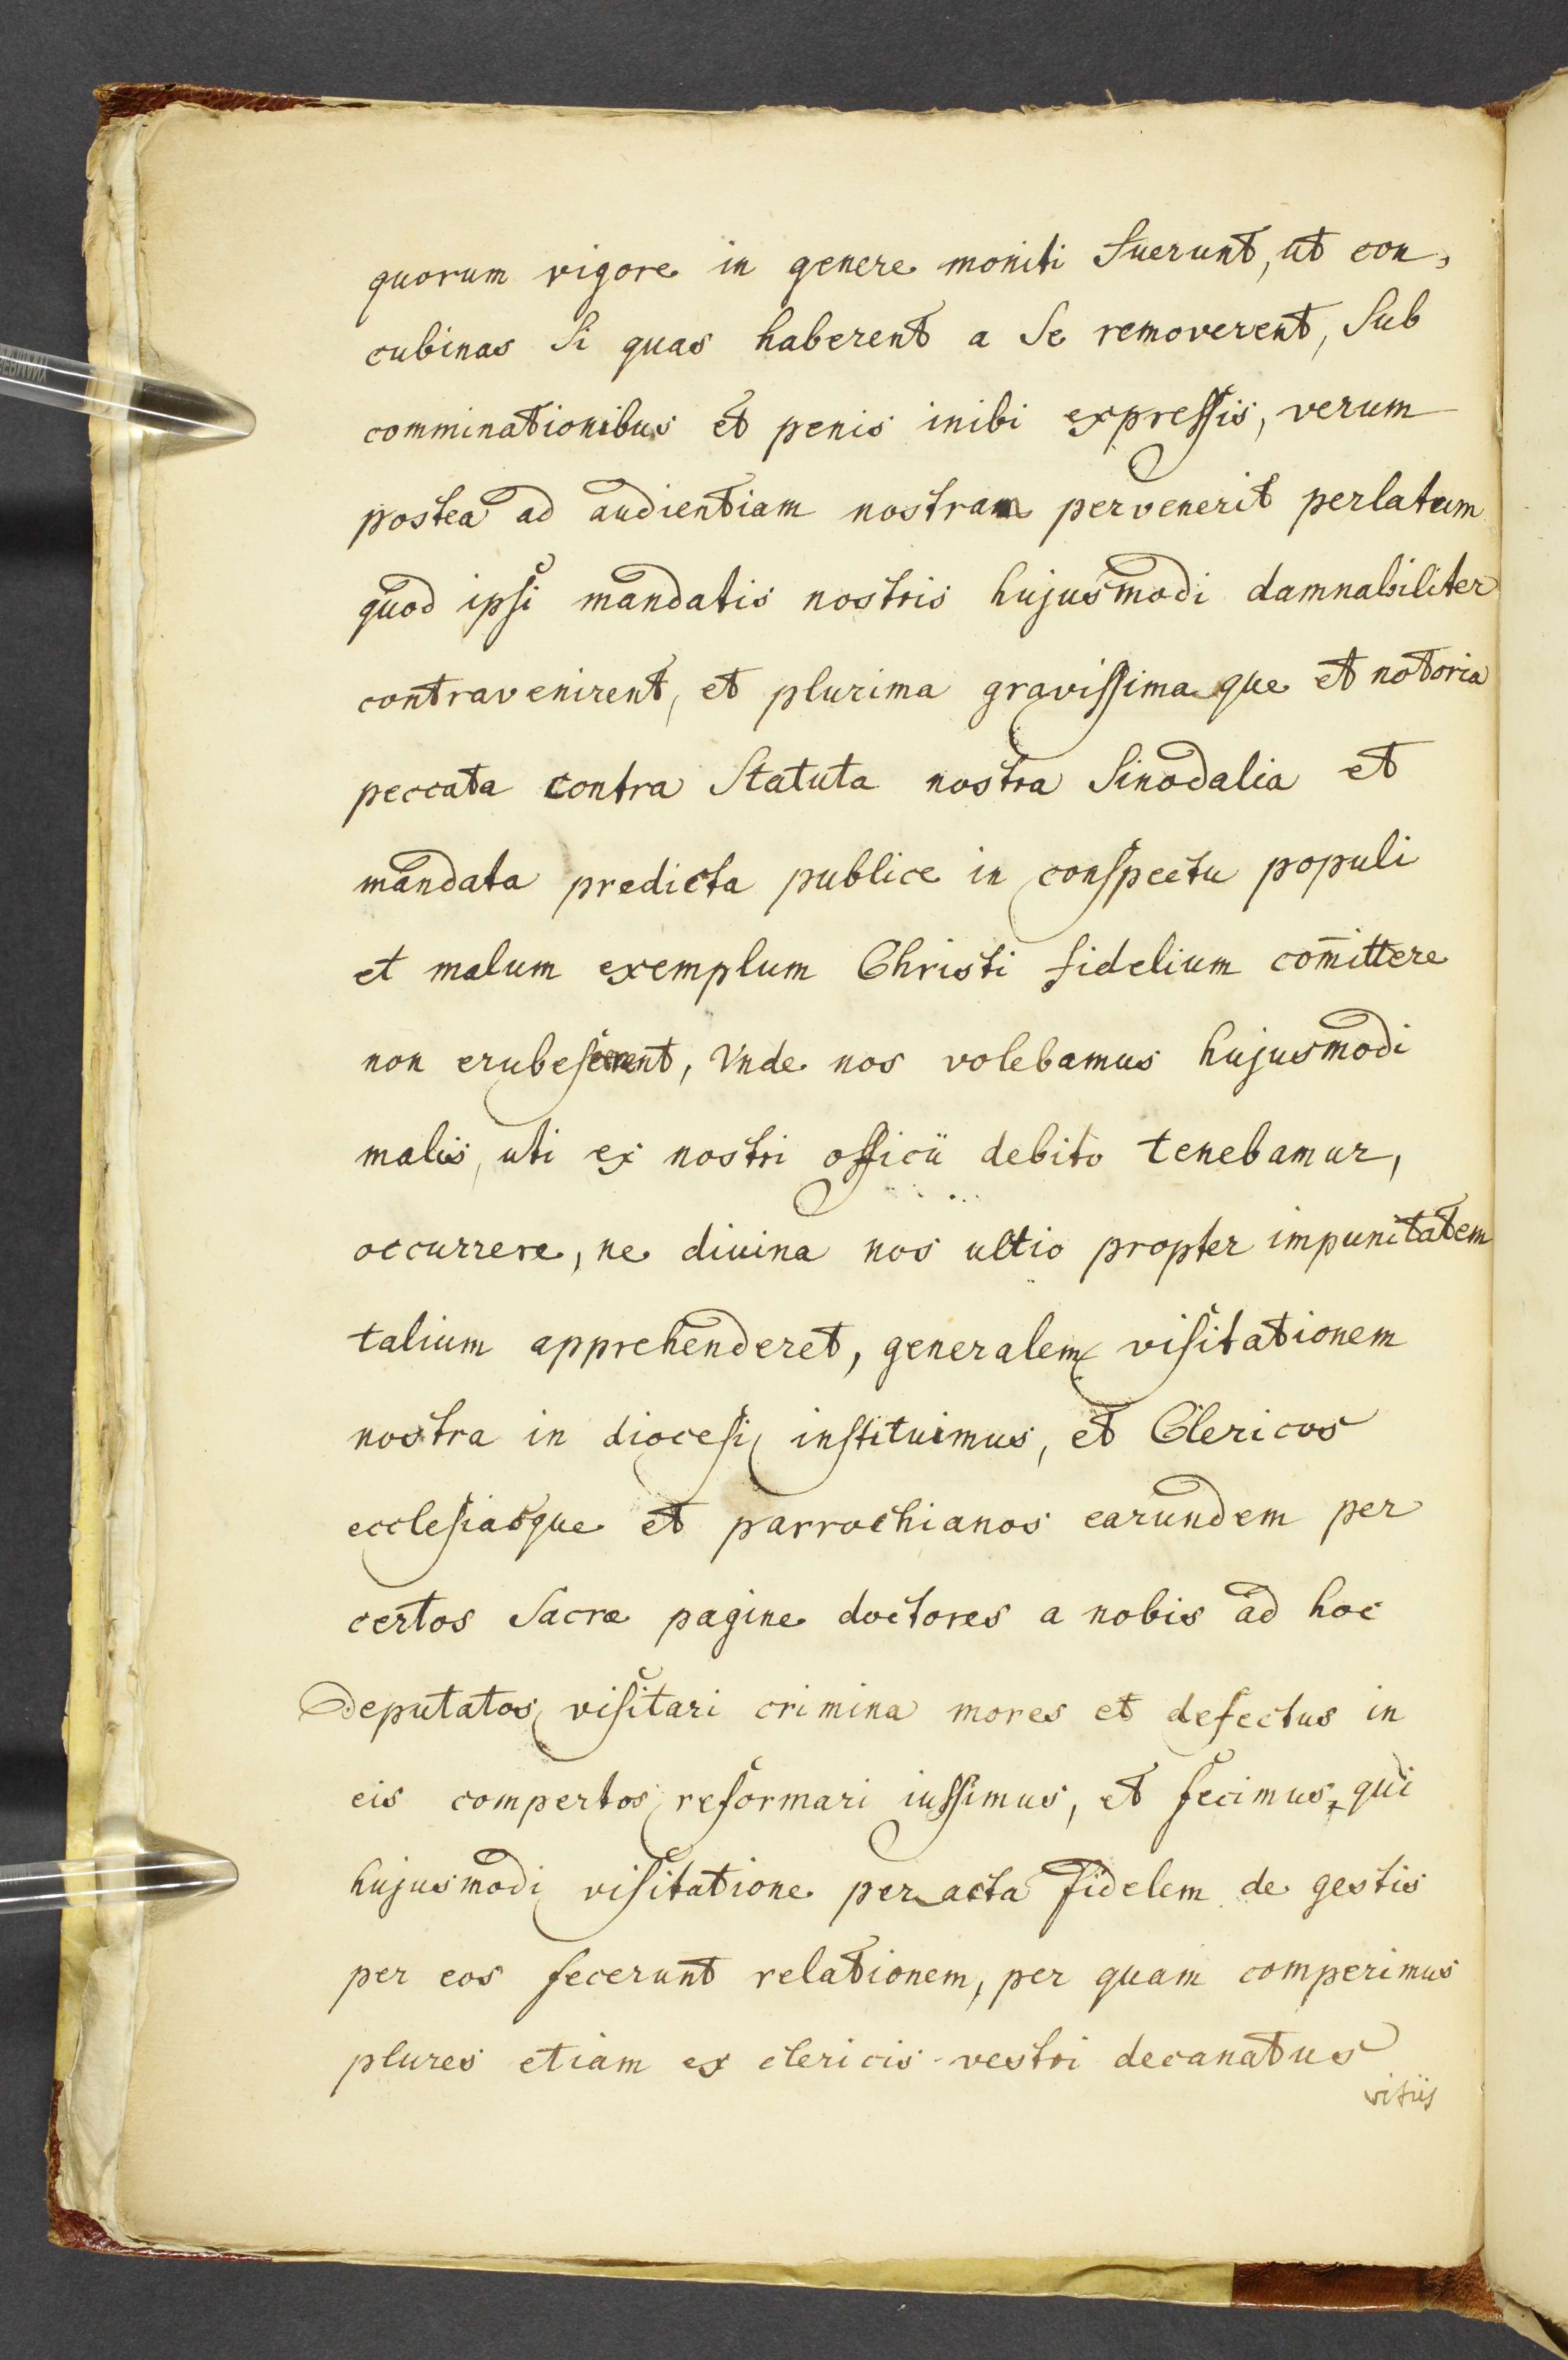 quorum vigore in genere moniti fuerunt, ut con,
cubinas si quas haberent a se removerent, sub
comminationibus et penis inibi expressis, verum
postea ad audientiam nostram pervenerit perlatum
quod ipsi mandatis nostris hujusmodi damnabiliter
contravenirent, et plurima gravissimaque et notoria
peccata contra statuta nostra sinodalia et
mandata predicta publice in conspectu populi
et malum exemplum Christi fidelium com̄ittere
non erubescerent, Unde nos volebamus hujusmodi
malis, uti ex nostri officii debito tenebamur,
occurrere, ne divina nos ultio propter impunitatem
talium apprehenderet, generalem visitationem
nostra in diocesi instituimus, et Clericos
ecclesiasque et parrochianos earundem per
certos sacre pagine doctores a nobis ad hoc
deputatos visitari crimina mores et defectus in
eis compertos reformari iussimus, et fecimus, qui
hujusmodi visitatione peracta fidelem de gestis
per eos fecerunt relationem, per quam comperimus
plures etiam ex clericis vestri decanatus
vitiis